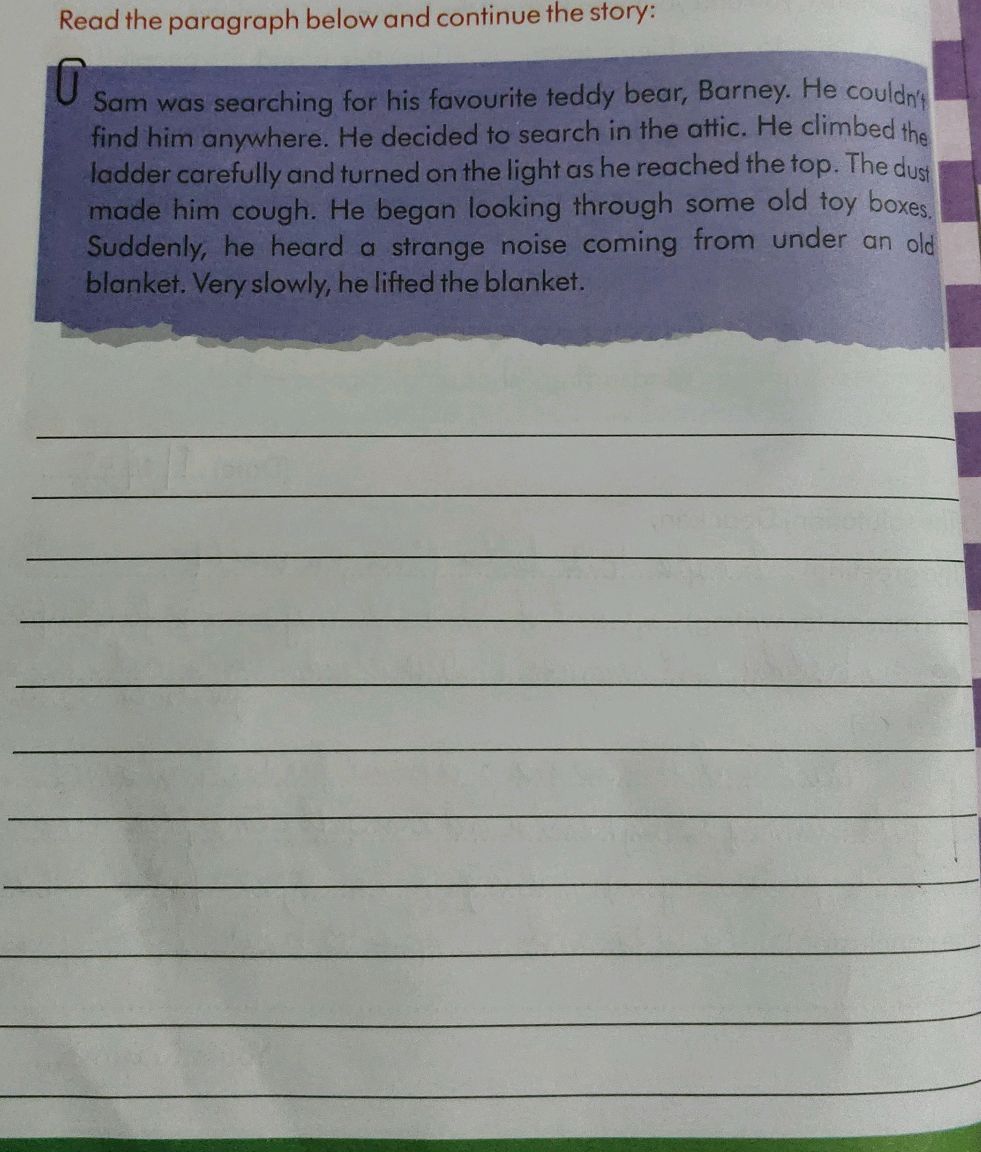 Read the paragraph below and continue the story:
Sam was searching for his favourite teddy bear, Barney. He couldn't
find him anywhere. He decided to search in the attic. He climbed the
ladder carefully and turned on the light as he reached the top. The dust
made him cough. He began looking through some old toy boxes.
Suddenly, he heard a strange noise coming from under an old
blanket. Very slowly, he lifted the blanket.